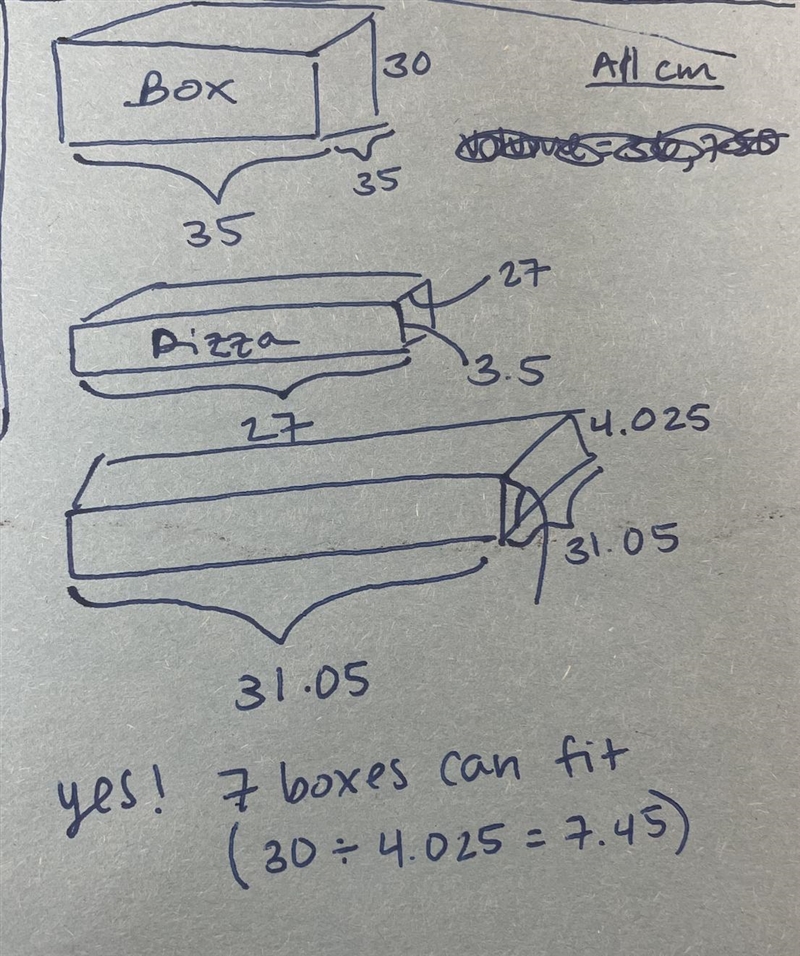 30
All cm
Box
volume = 36,750
35
35
27
Pizza
3.5
27
4.025
31.05
31.05
yes! 7 boxes can fit
(30 ÷ 4.025 = 7.45)